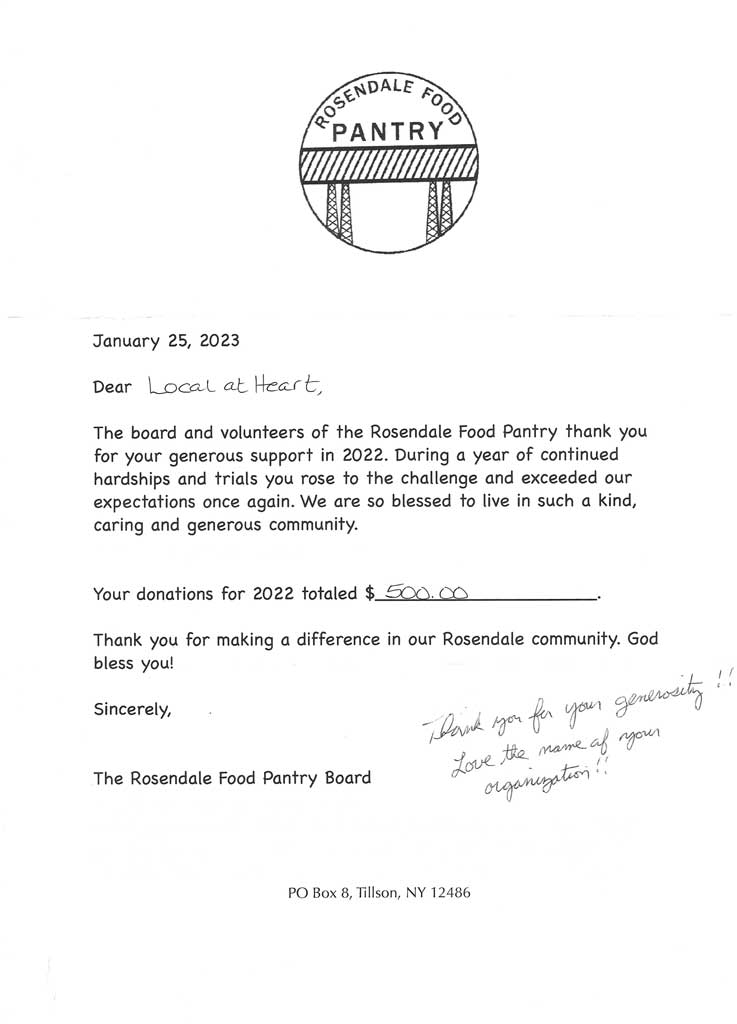 ROSENDALE FOOD
PANTRY
January 25, 2023
Dear Local at Heart,
The board and volunteers of the Rosendale Food Pantry thank you
for your generous support in 2022. During a year of continued
hardships and trials you rose to the challenge and exceeded our
expectations once again. We are so blessed to live in such a kind,
caring and generous community.
Your donations for 2022 totaled $ 500.00.
Thank you for making a difference in our Rosendale community. God
bless you!
Sincerely,
Thank you for your generosity!!
Love the name of your
organization!!
The Rosendale Food Pantry Board
PO Box 8, Tillson, NY 12486